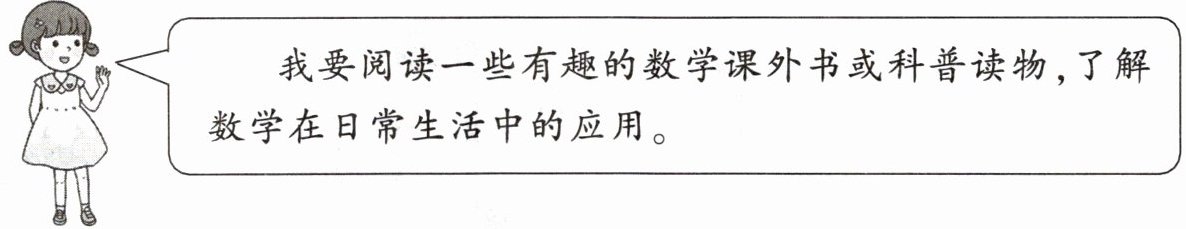 我要阅读一些有趣的数学课外书或科普读物,了解
数学在日常生活中的应用。